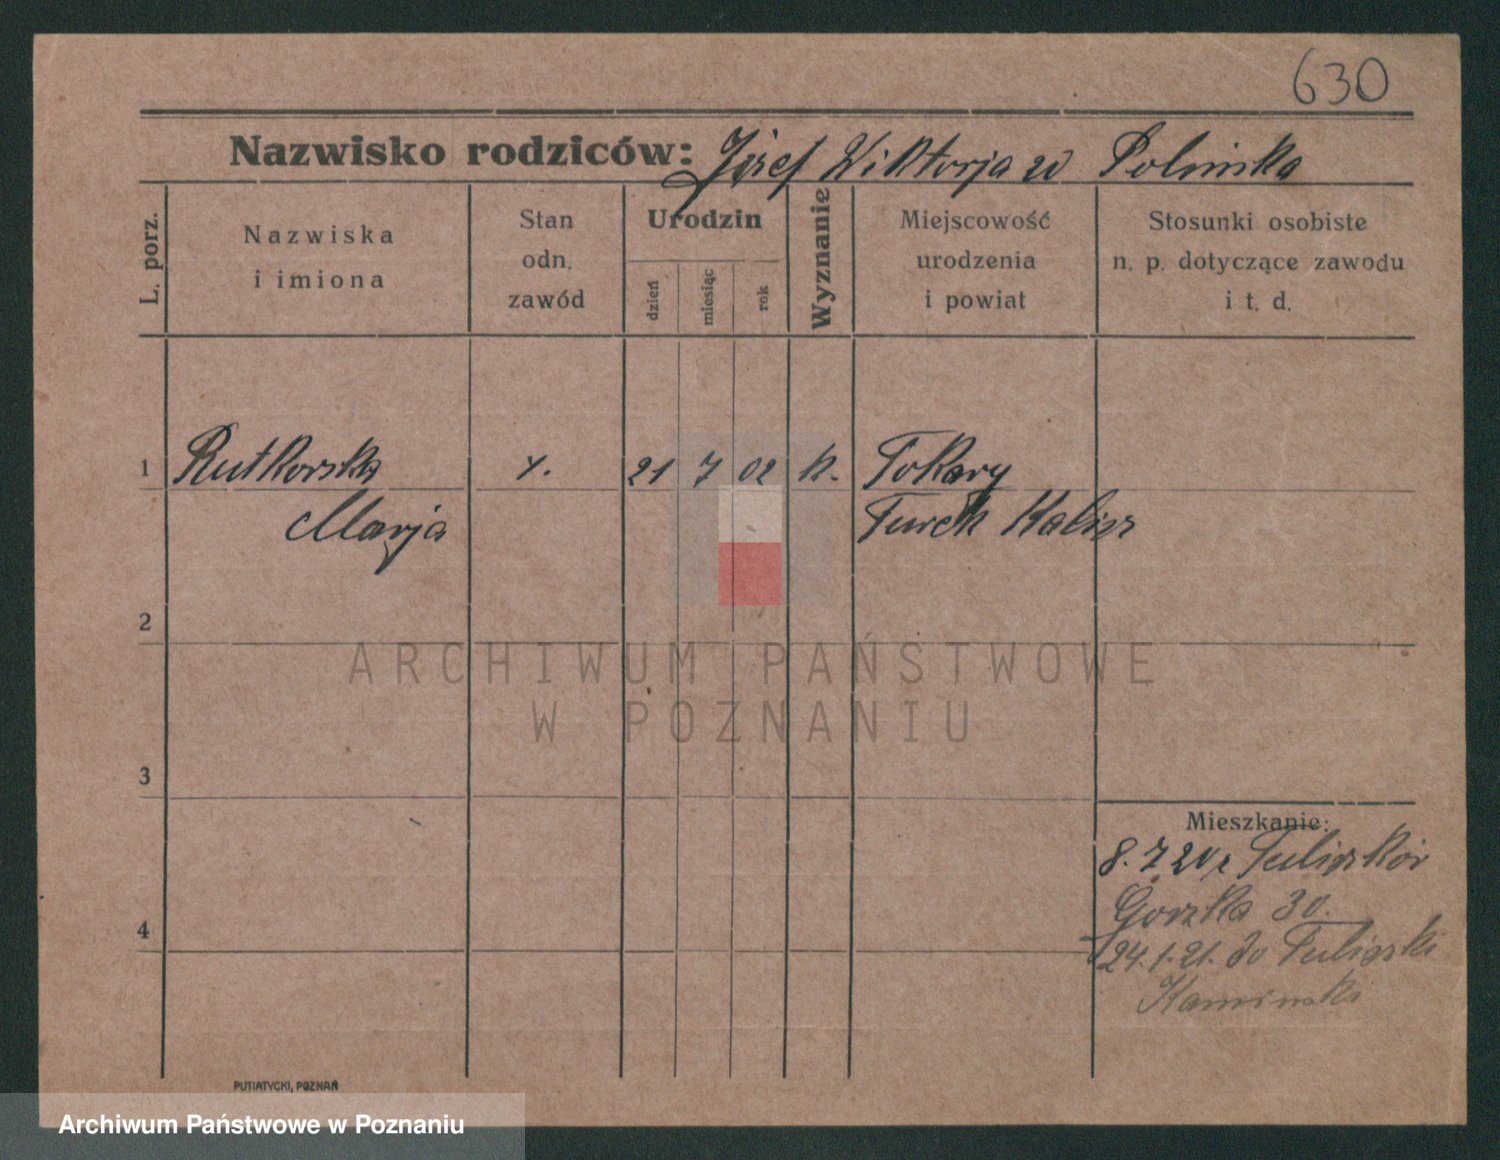 630
Nazwisko rodziców: Józef Wiktorja zd Polińska
L. porz.
Nazwiska
i imiona
Stan
odn.
zawód
Urodzin
dzień
miesiąc
rok
Wyznanie
Miejscowość
urodzenia
i powiat
Stosunki osobiste
n. p. dotyczące zawodu
i t. d.
1 Rutkowska 21 7 02 k. Tokary
Marja Turek Kalisz
2
ARCHIWUM PAŃSTWOWE
W POZNANIU
3
Mieszkanie:
8.7 20 r Tuliszków
4
Górzka 30.
24.1.21. do Tuliszki
Kaminski
PUTIATYCKI, POZNAŃ
Archiwum Państwowe w Poznaniu